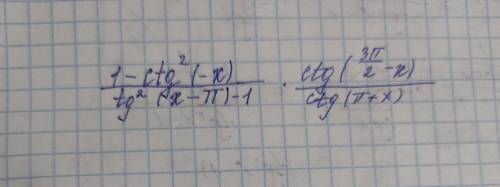 (1 - ctg²(-x)) / (tg²(x - π) - 1) · ctg(3π/2 - x) / ctg(π + x)